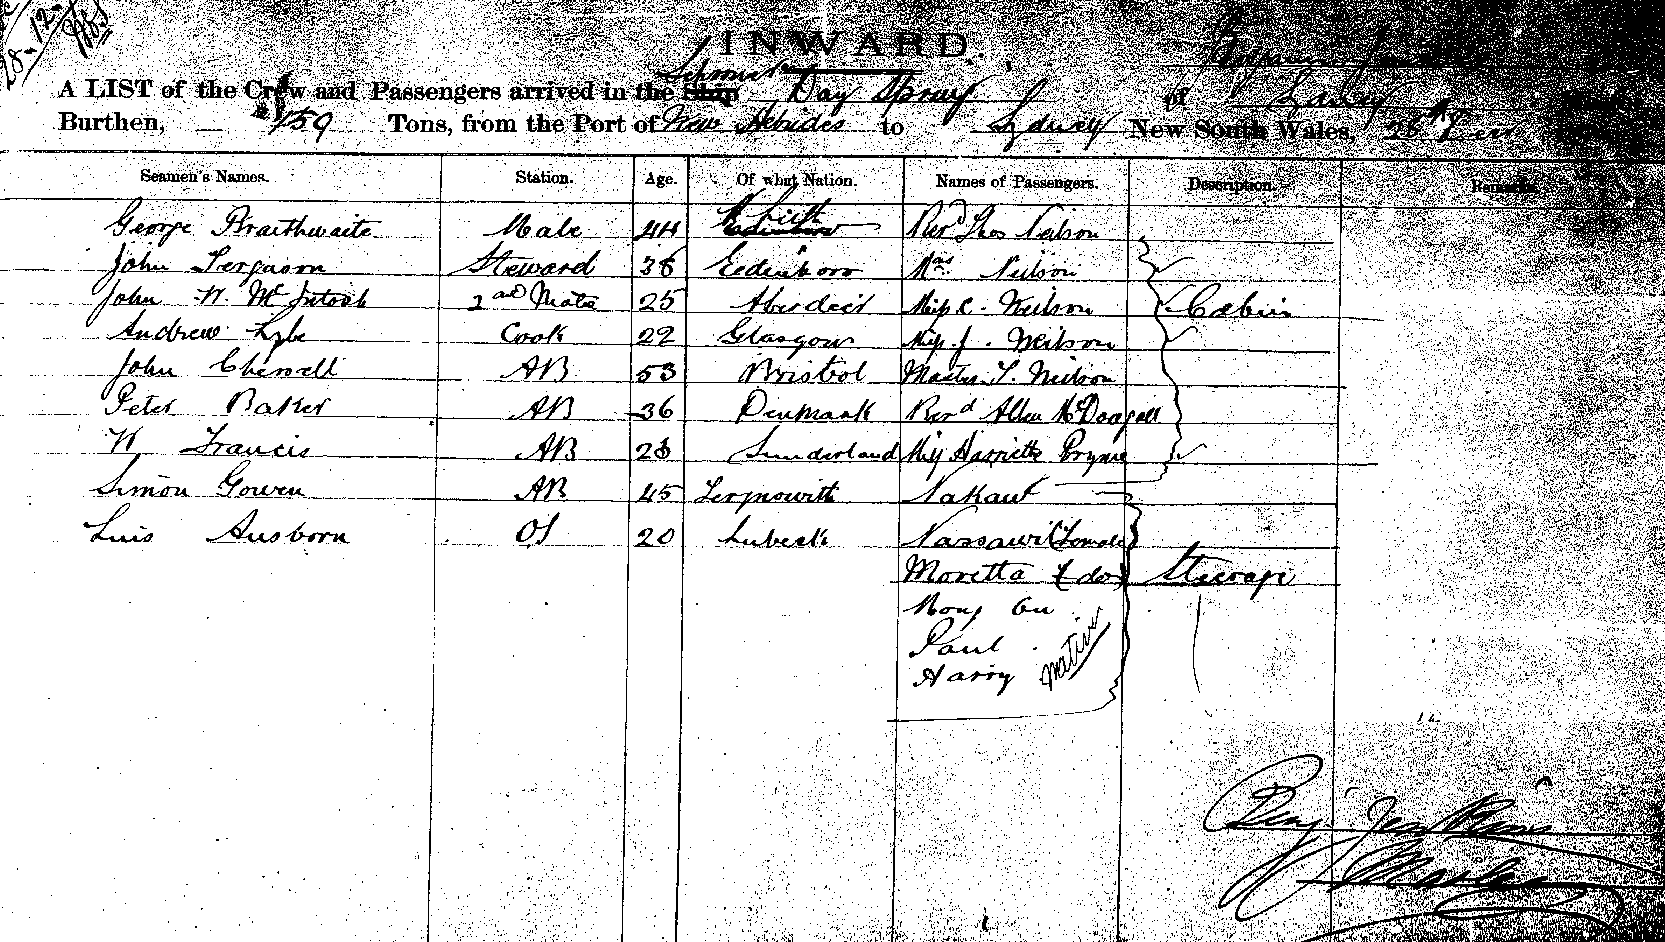 28.12.
INWARD.
A LIST of the Crew and Passengers arrived in the Ship Schooner Day Spray of Sydney
Burthen, 159 Tons, from the Port of New Hebrides to Sydney New South Wales, 28th
Seamen's Names. Station. Age. Of what Nation. Names of Passengers. Description. Remarks.
George Braithwaite Mate 44 Leith Revd Thos Neilson
John Ferguson Steward 38 Eedinboro Mrs Neilson
John W. McIntosh 2nd Mate 25 Aberdeen Miss C. Neilson Cabin
Andrew Lybe Cook 22 Glasgow Miss J. Neilson
John AB 53 Bristol Master T. Neilson
Peter Baker AB 36 Denmark Revd Allan McDougall
W Francis AB 23 Sunderland Miss Harriette Pryme
Simon Gowen AB 45 Nakauf
Luis Ausborn OS 20 Lubeck (Female)
Moretta (do) Steerage
Paul
Harry Native
Benj Jenkins
Master